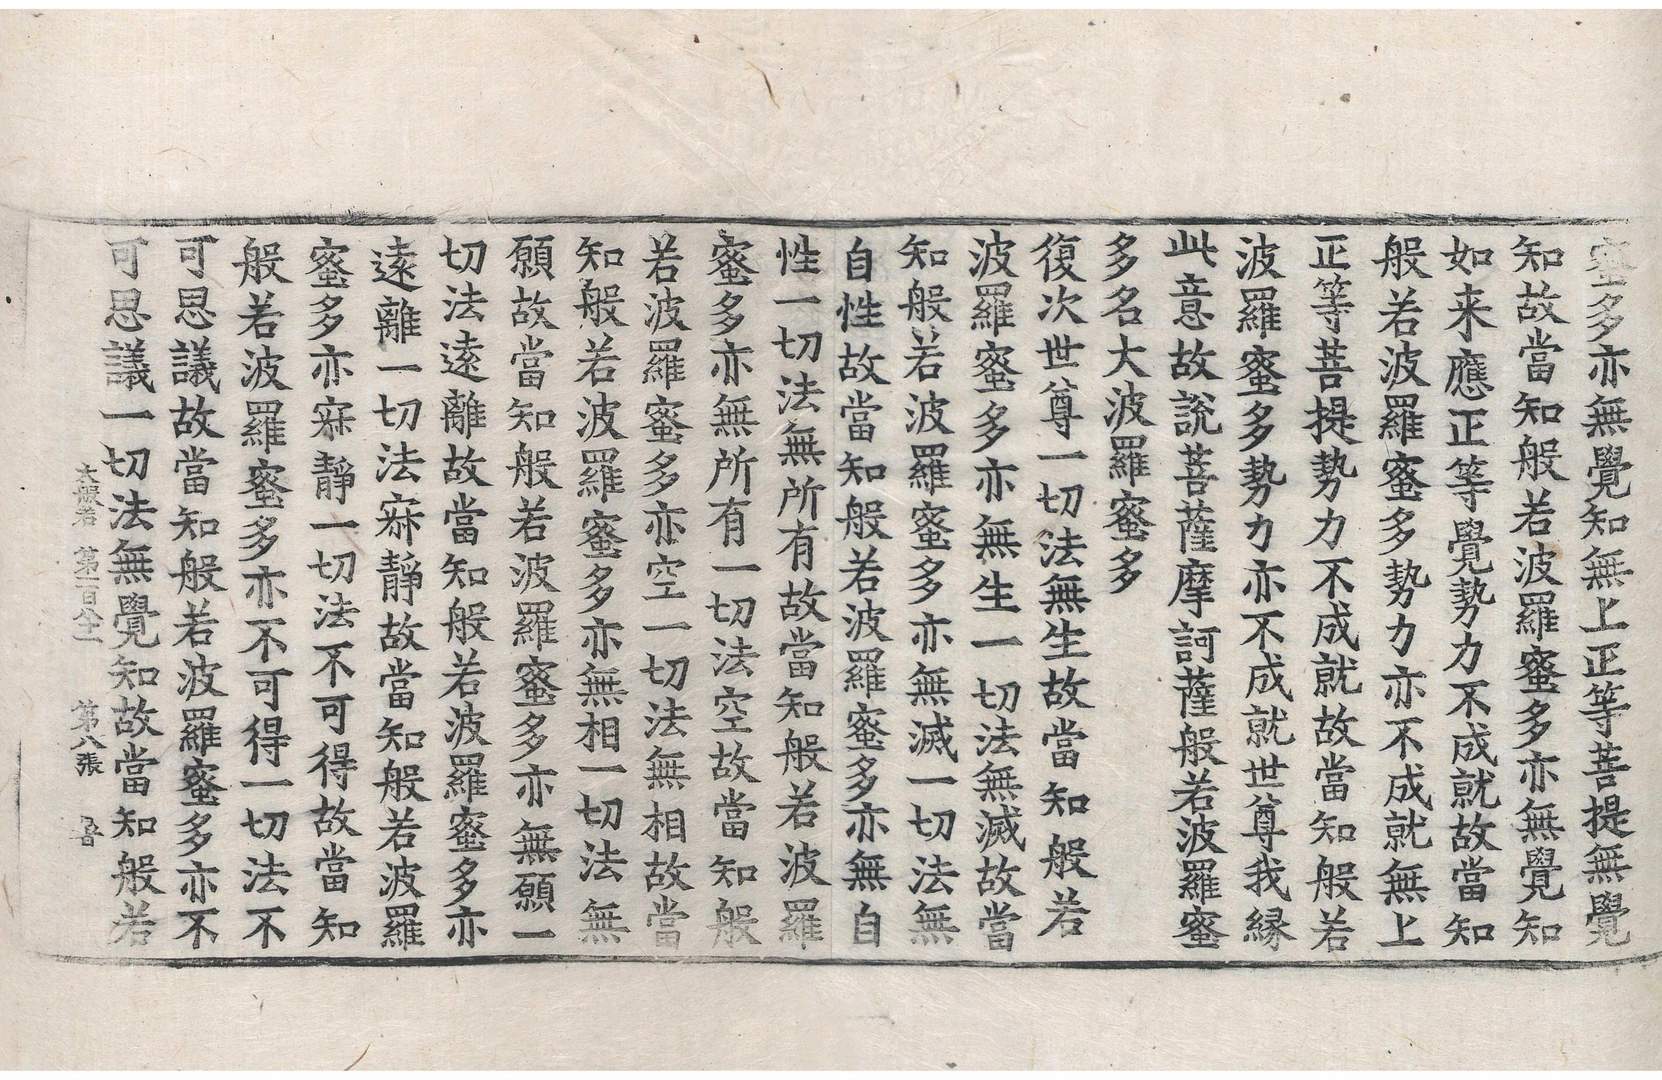 蜜多亦無覺知無上正等菩提無覺
知故當知般若波羅蜜多亦無覺知
如来應正等覺勢力不成就故當知
般若波羅蜜多勢力亦不成就無上
正等菩提勢力不成就故當知般若
波羅蜜多勢力亦不成就世尊我縁
此意故說菩薩摩訶薩般若波羅蜜
多名大波羅蜜多
復次世尊一切法無生故當知般若
波羅蜜多亦無生一切法無滅故當
知般若波羅蜜多亦無滅一切法無
自性故當知般若波羅蜜多亦無自
性一切法無所有故當知般若波羅
蜜多亦無所有一切法空故當知般
若波羅蜜多亦空一切法無相故當
知般若波羅蜜多亦無相一切法無
願故當知般若波羅蜜多亦無願一
切法遠離故當知般若波羅蜜多亦
遠離一切法寂靜故當知般若波羅
蜜多亦寂靜一切法不可得故當知
般若波羅蜜多亦不可得一切法不
可思議故當知般若波羅蜜多亦不
可思議一切法無覺知故當知般若
大般若 第一百八十一 第八張